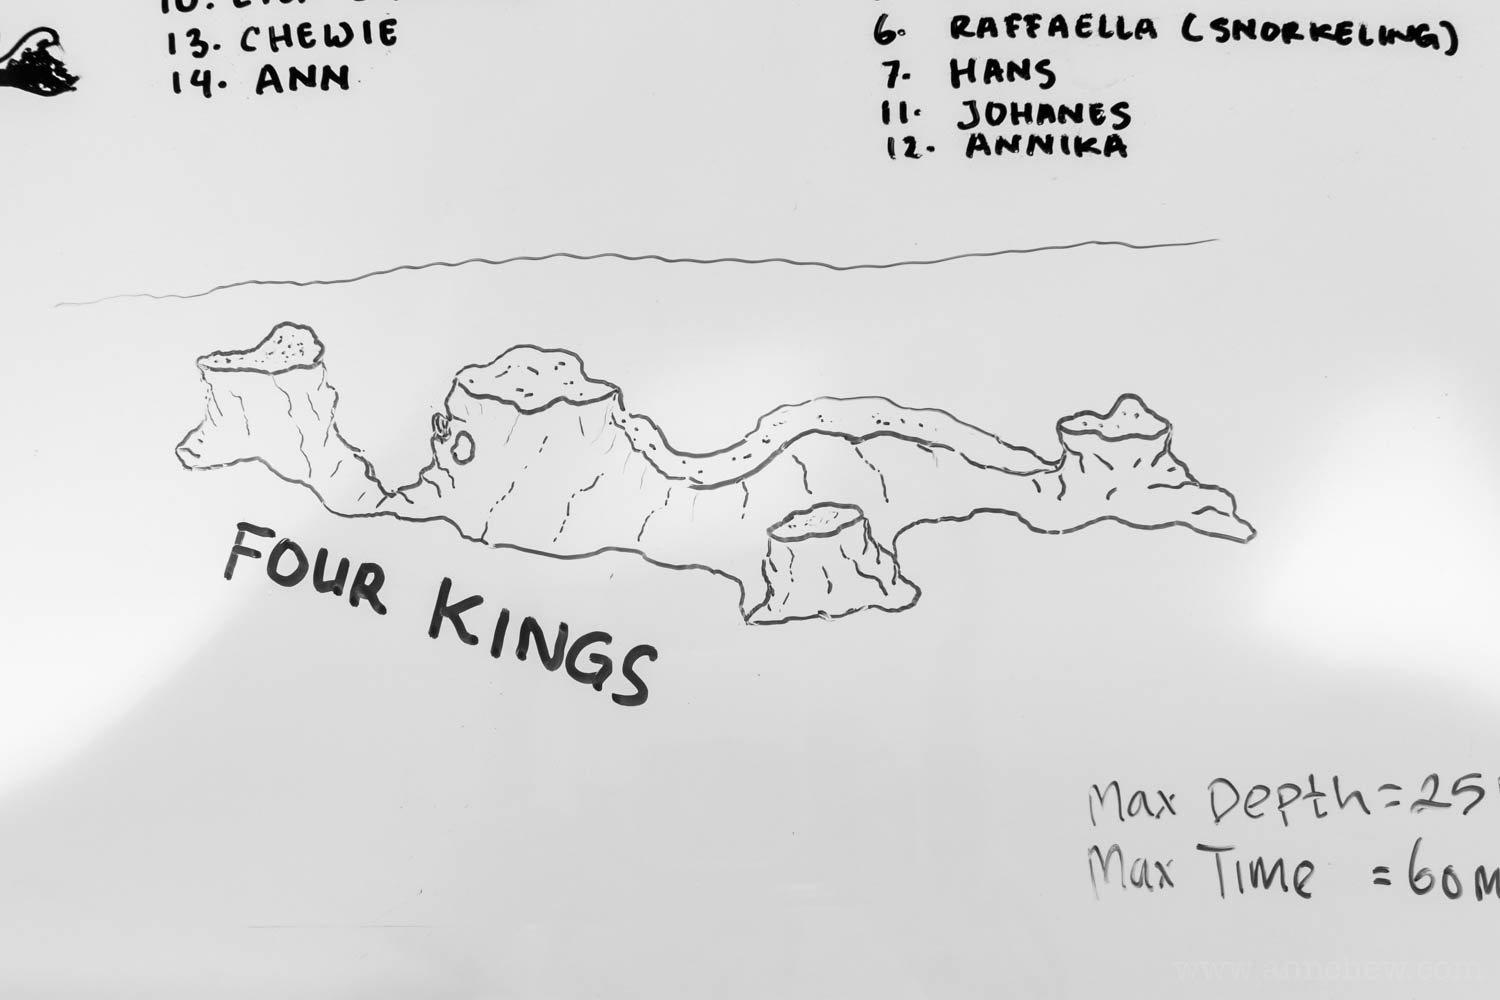 10.
13. CHEWIE
14. ANN
6. RAFFAELLA (SNORKELING)
7. HANS
11. JOHANES
12. ANNIKA
FOUR KINGS
Max Depth = 25
Max Time = 60m
www.annchew.com